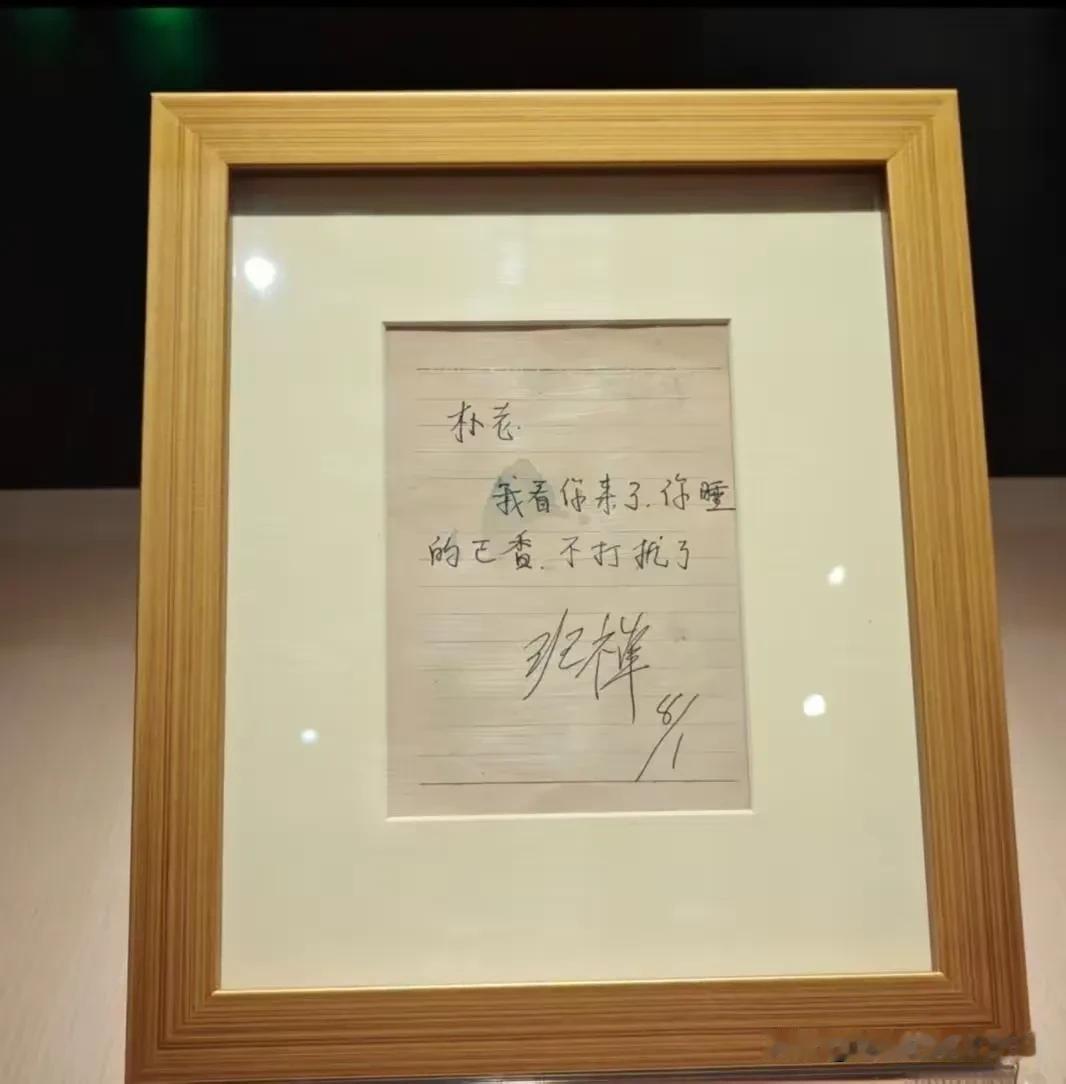 朴老.
我看你来了.你睡
的正香.不打扰了
班禅
8/1